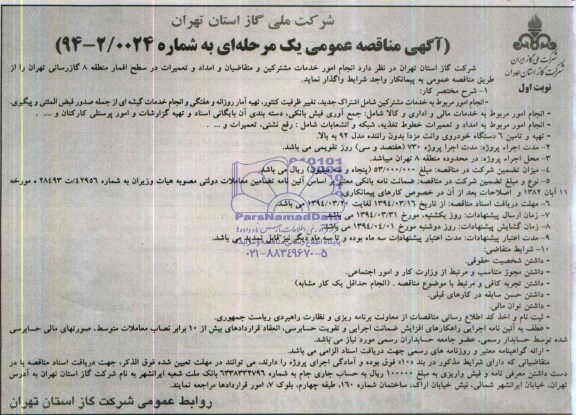 شرکت ملی گاز استان تهران
(آگهی مناقصه عمومی یک مرحله‌ای به شماره ۰۰۲۴/۲-۹۴)
شرکت ملی گاز ایران
شرکت گاز استان تهران
نوبت اول
شرکت گاز استان تهران در نظر دارد انجام امور خدمات مشترکین و متقاضیان و امداد و تعمیرات در سطح اقمار منطقه ۸ گازرسانی تهران را از
طریق مناقصه عمومی به پیمانکار واجد شرایط واگذار نماید.
۱- شرح مختصر کار:
-انجام امور مربوط به خدمات مشترکین شامل اشتراک جدید، تغییر ظرفیت کنتور، تهیه آمار روزانه و هفتگی و انجام خدمات گیشه ای از جمله صدور قبض المثنی و پیگیری.
- انجام امور مربوط به خدمات مالی و اداری و کالا شامل: جمع آوری فیش بانکی، دسته بندی آن بایگانی اسناد و تهیه گزارشات و امور پرسنلی کارکنان و ....
- انجام امور مربوط به امداد و تعمیرات خطوط تغذیه، شبکه و انشعابات شامل: رفع نشتی، تعمیرات و ...
- تهیه و تامین ۶ دستگاه خودروی وانت مزدا بدون راننده مدل ۹۲ به بالا.
۲- مدت اجراء پروژه: مدت اجرا پروژه ۷۳۰ (هفتصد و سی) روز تقویمی می باشد.
۳- محل اجراء پروژه: در محدوده منطقه ۸ تهران میباشد.
۴- میزان تضمین شرکت در مناقصه: مبلغ ۵۳/۰۰۰/۰۰۰ (پنجاه و سه میلیون) ریال می باشد.
۵- نوع و مبلغ تضمین شرکت در مناقصه: ضمانت نامه بانکی معتبر بر اساس آئین نامه تضامین معاملات دولتی مصوبه هیات وزیران به شماره ۴۲۹۵۶/ت ۲۸۴۹۳ ه مورخه
۱۱ آبان ۱۳۸۲ و اصلاحات بعد از آن در خصوص کارهای پیمانکاری.
۶- مهلت دریافت اسناد مناقصه: از تاریخ ۱۳۹۴/۰۳/۱۶ لغایت ۱۳۹۴/۰۳/۲۰ می باشد.
۷- زمان ارسال پیشنهادات: روز یکشنبه، مورخ ۱۳۹۴/۰۳/۳۱ می باشد.
۸- زمان گشایش پیشنهادات: روز دوشنبه مورخ ۱۳۹۴/۰۴/۰۱ می باشد.
۹- مدت اعتبار پیشنهادات: مدت اعتبار پیشنهادات سه ماه بوده و تا سه ماه دیگر نیز قابل تمدید می باشد.
۱۰- شرایط متقاضی:
- داشتن شخصیت حقوقی.
- داشتن مجوز متناسب و مرتبط از وزارت کار و امور اجتماعی.
- داشتن تجربه کافی و مرتبط با موضوع مناقصه. (انجام حداقل یک کار مشابه)
- داشتن حسن سابقه در کارهای قبلی.
- داشتن توان مالی.
- ثبت نام و اخذ کد اطلاع رسانی مناقصات از معاونت برنامه ریزی و نظارت راهبردی ریاست جمهوری.
- عطف به آئین نامه اجرایی راهکارهای افزایش ضمانت اجرایی و تقویت حسابرسی، انعقاد قراردادهای بیش از ۱۰ برابر نصاب معاملات متوسط، صورتهای مالی حسابرسی
شده توسط حسابدار رسمی، عضو جامعه حسابداران رسمی مورد نیاز می باشد.
- ارائه گواهینامه معتبر و روزنامه های رسمی جهت دریافت اسناد الزامی می باشد.
متقاضیانی که دارای شرایط مذکور در بند ۱۰ فوق بوده و آمادگی اجرای پروژه را دارند، می توانند در مهلت تعیین شده فوق الذکر، جهت دریافت اسناد مناقصه با در
دست داشتن معرفی نامه و فیش واریزی به مبلغ ۱۰۰۰۰۰۰ ریال به حساب جاری جام به شماره ۶۳۳۸۳۳۲۷۹۶ بانک ملت شعبه ایرانشهر به نام شرکت گاز استان تهران به آدرس
تهران، خیابان ایرانشهر شمالی، نبش خیابان اراک، ساختمان شماره ۱۶۰، طبقه چهارم، بلوک ۷، امور قراردادها مراجعه نمایند.
روابط عمومی شرکت گاز استان تهران
ParsNamadData
پایگاه اطلاع رسانی مناقصه و مزایده
۰۲۱-۸۸۳۴۹۶۷۰-۵